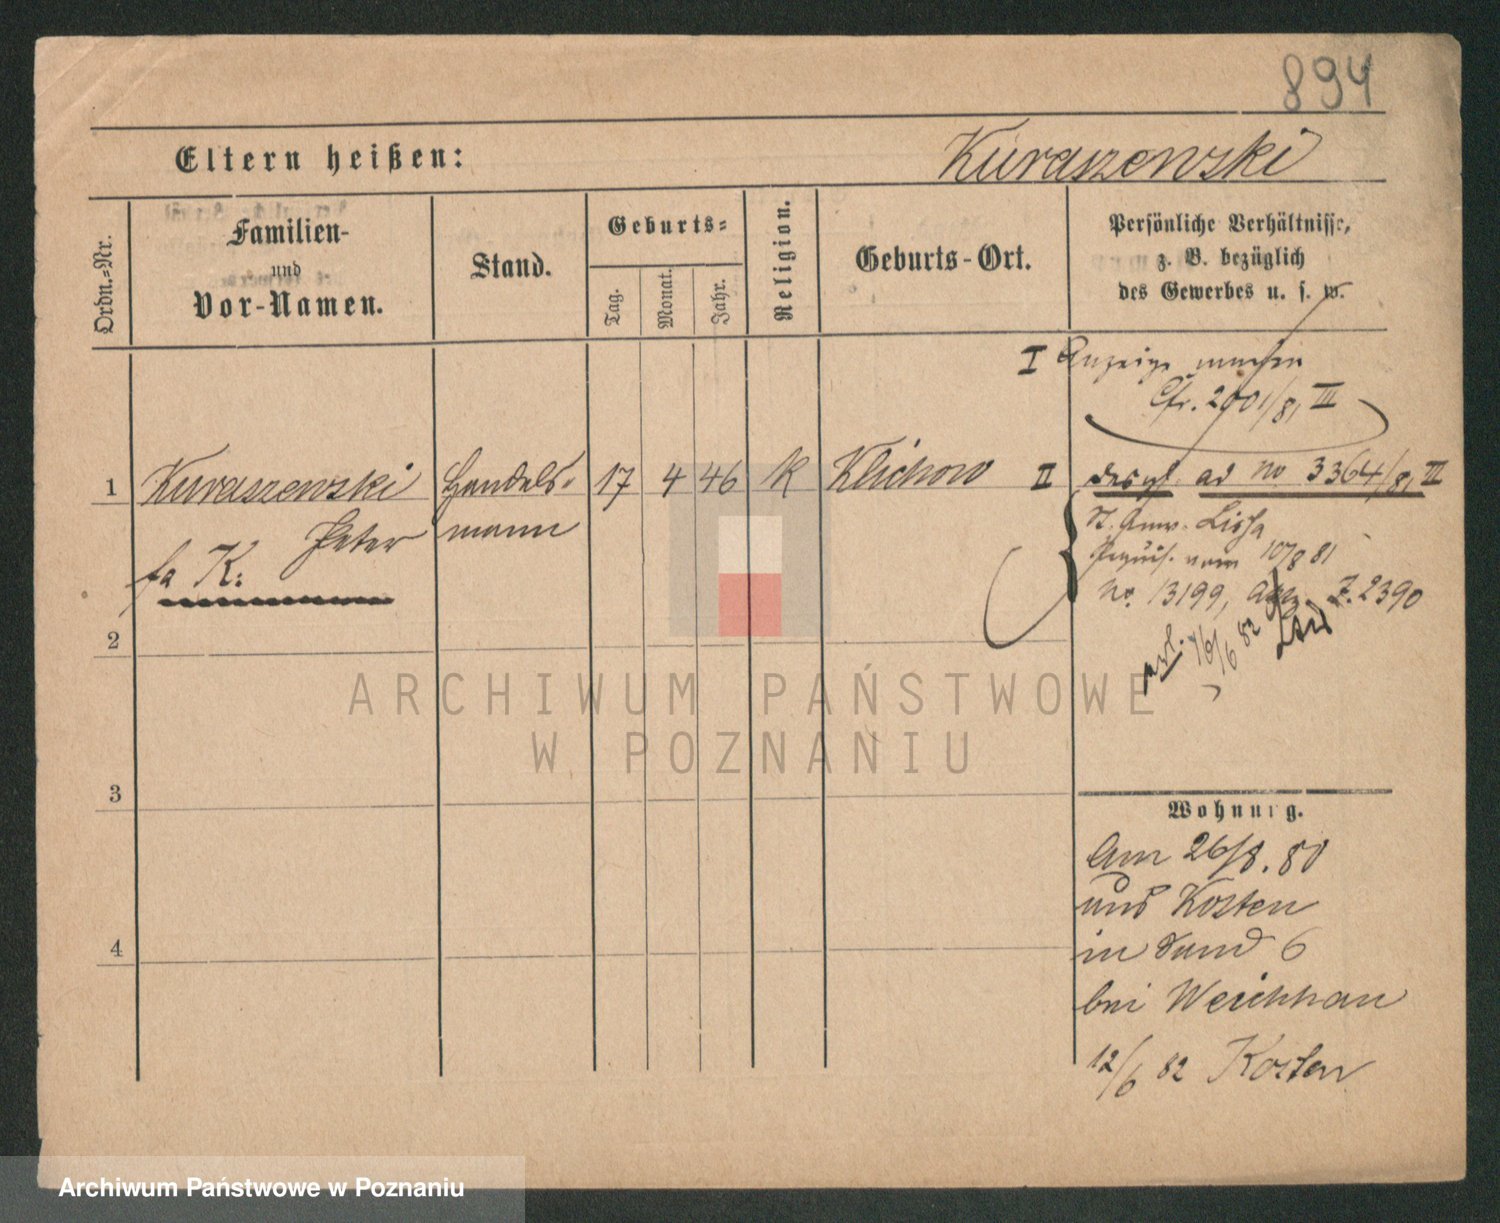 894
Eltern heißen:
Kuraszewski
Ordn.-Nr.
Familien-
und
Vor-Namen.
Stand.
Geburts-
Tag.
Monat.
Jahr.
Religion.
Geburts-Ort.
Persönliche Verhältnisse,
z. B. bezüglich
des Gewerbes u. s. w.
I Anzeige machen
Cfr. 2001/81 III
1 Kuraszewski Handels- 17 4 46 K Klichow
Peter mann
fa K:
II desgl. ad No 3364/81 III
St. Anw. Lissa
Requis. vom 10/8 81
No. 13199, 2390
16/6 82
2
3
4
Wohnung.
Am 26/8. 80
und Kosten
in Sund 6
bei Weichhan
12/6 82 Kosten
ARCHIWUM PAŃSTWOWE
W POZNANIU
Archiwum Państwowe w Poznaniu